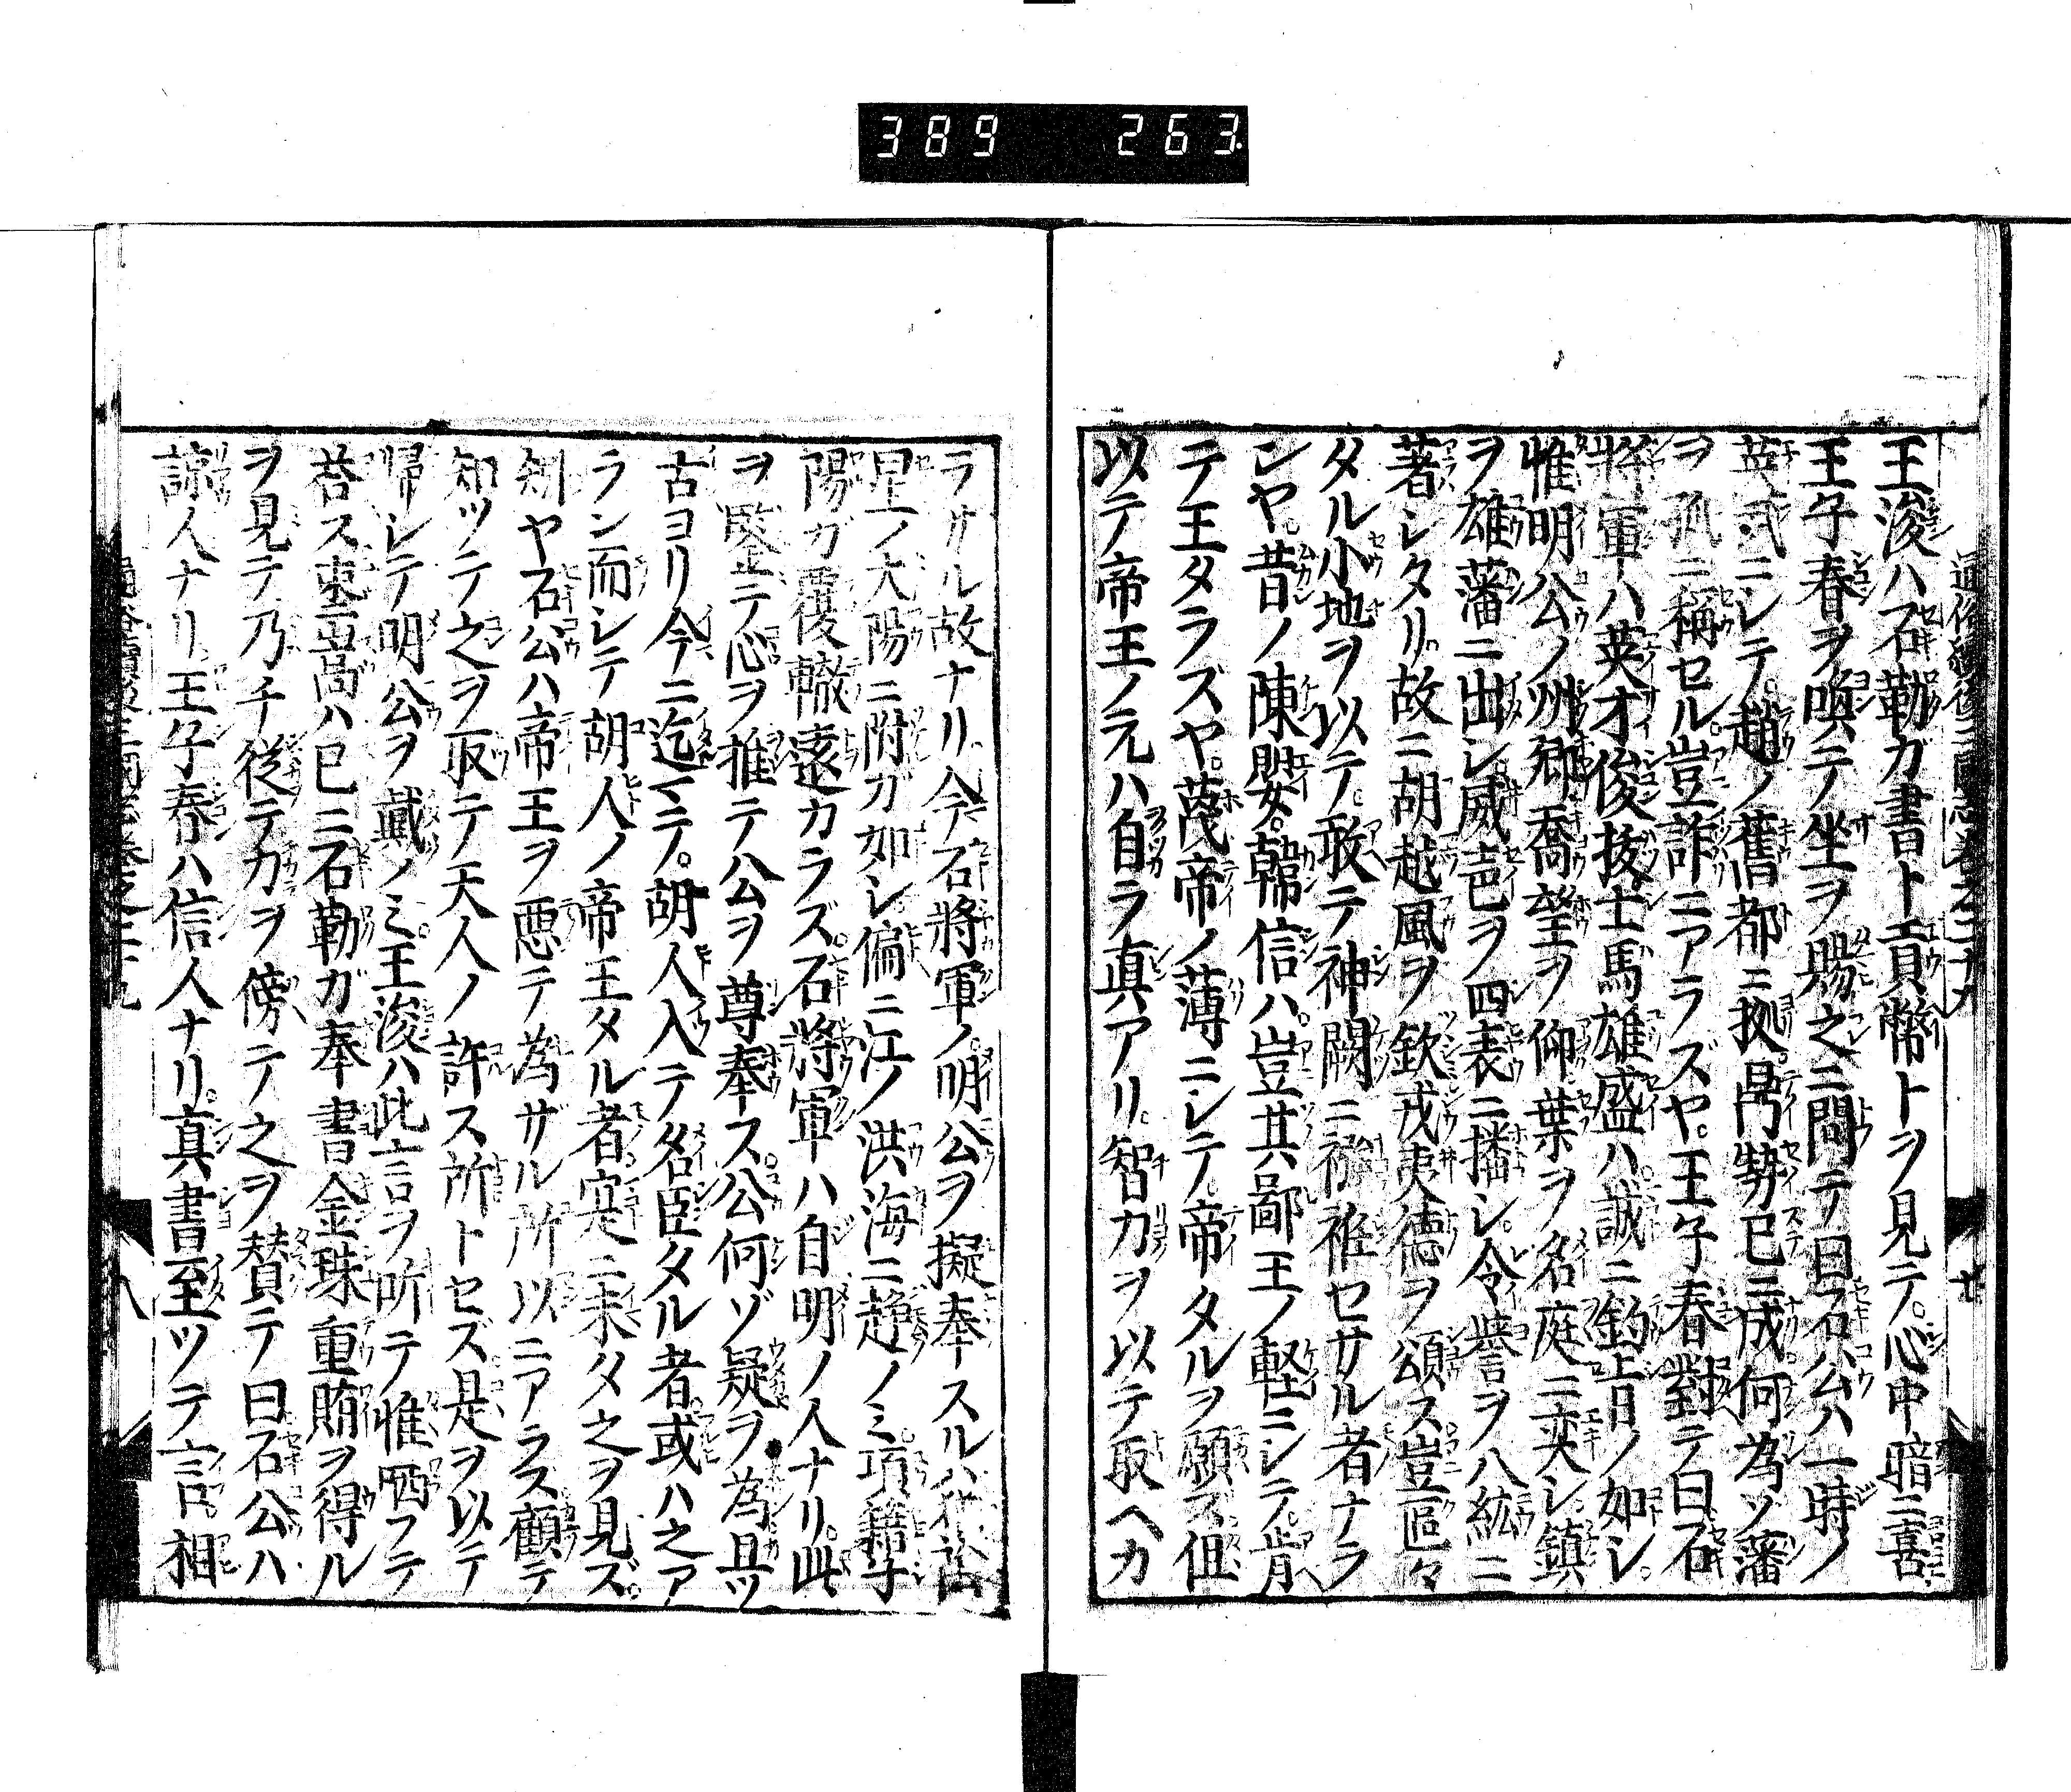 389 263
王浚ハ石勒ガ書ト貢幣トヲ見テ。心中暗ニ喜
王子春ヲ喚テ坐ヲ賜之ニ問テ曰石公ハ一時ノ
英武ニシテ。趙ノ舊都ニ拠。鼎勢已ニ成何為ソ藩
ヲ孤ニ稱セル。豈詐ニアラズヤ。王子春對テ曰石
將軍ハ英才俊拔士馬雄盛ハ誠ニ釣旨ノ如シ。
惟明公ノ州郷喬望ヲ仰葉ヲ名庭ニ奕シ。鎮
ヲ雄藩ニ出シ。威声ヲ四表ニ播シ。令誉ヲ八紘ニ
著シタリ。故ニ胡越風ヲ欽戎夷徳ヲ頌ス豈區々
タル小地ヲ以テ。敢テ神闕ニ襟衽セサル者ナラ
ンヤ。昔ノ陳嬰。韓信ハ。豈其鄙王ノ軽ニシテ。肯
テ王タラズヤ。蔑帝ノ薄ニシテ。帝タルヲ願ス但
以テ帝王ノ元ハ自ラ真アリ。智力ヲ以テ取ヘカ
ラサル故ナリ。今石將軍ノ。明公ヲ擬奉スルハ
星ノ大陽ニ附ガ如シ。偏ニ江ノ洪海ニ趨ノミ。項籍子
陽ガ覆轍遠カラズ。石將軍ハ自明ノ人ナリ。此
ヲ鑒テ心ヲ推テ公ヲ尊奉ス。公何ゾ疑ヲ為且ツ
古ヨリ今ニ迄マテ。胡人入テ名臣タル者或ハ之ア
ラン而シテ胡人ノ帝王タル者。寔ニ未タ之ヲ見ズ。
矧ヤ石公ハ帝王ヲ悪テ為サル所以ニアラス顧テ
知ッテ之ヲ取テ天人ノ許ス所トセズ是ヲ以テ
帰シテ明公ヲ戴ノミ。王浚ハ此言ヲ听テ惟哂フテ
荅ス棗嵩ハ已ニ石勒ガ奉書金珠重賄ヲ得ル
ヲ見テ乃チ従テ力ヲ傍テ之ヲ賛テ曰石公ハ
諒人ナリ。王子春ハ信人ナリ。真書至ツテ言。相